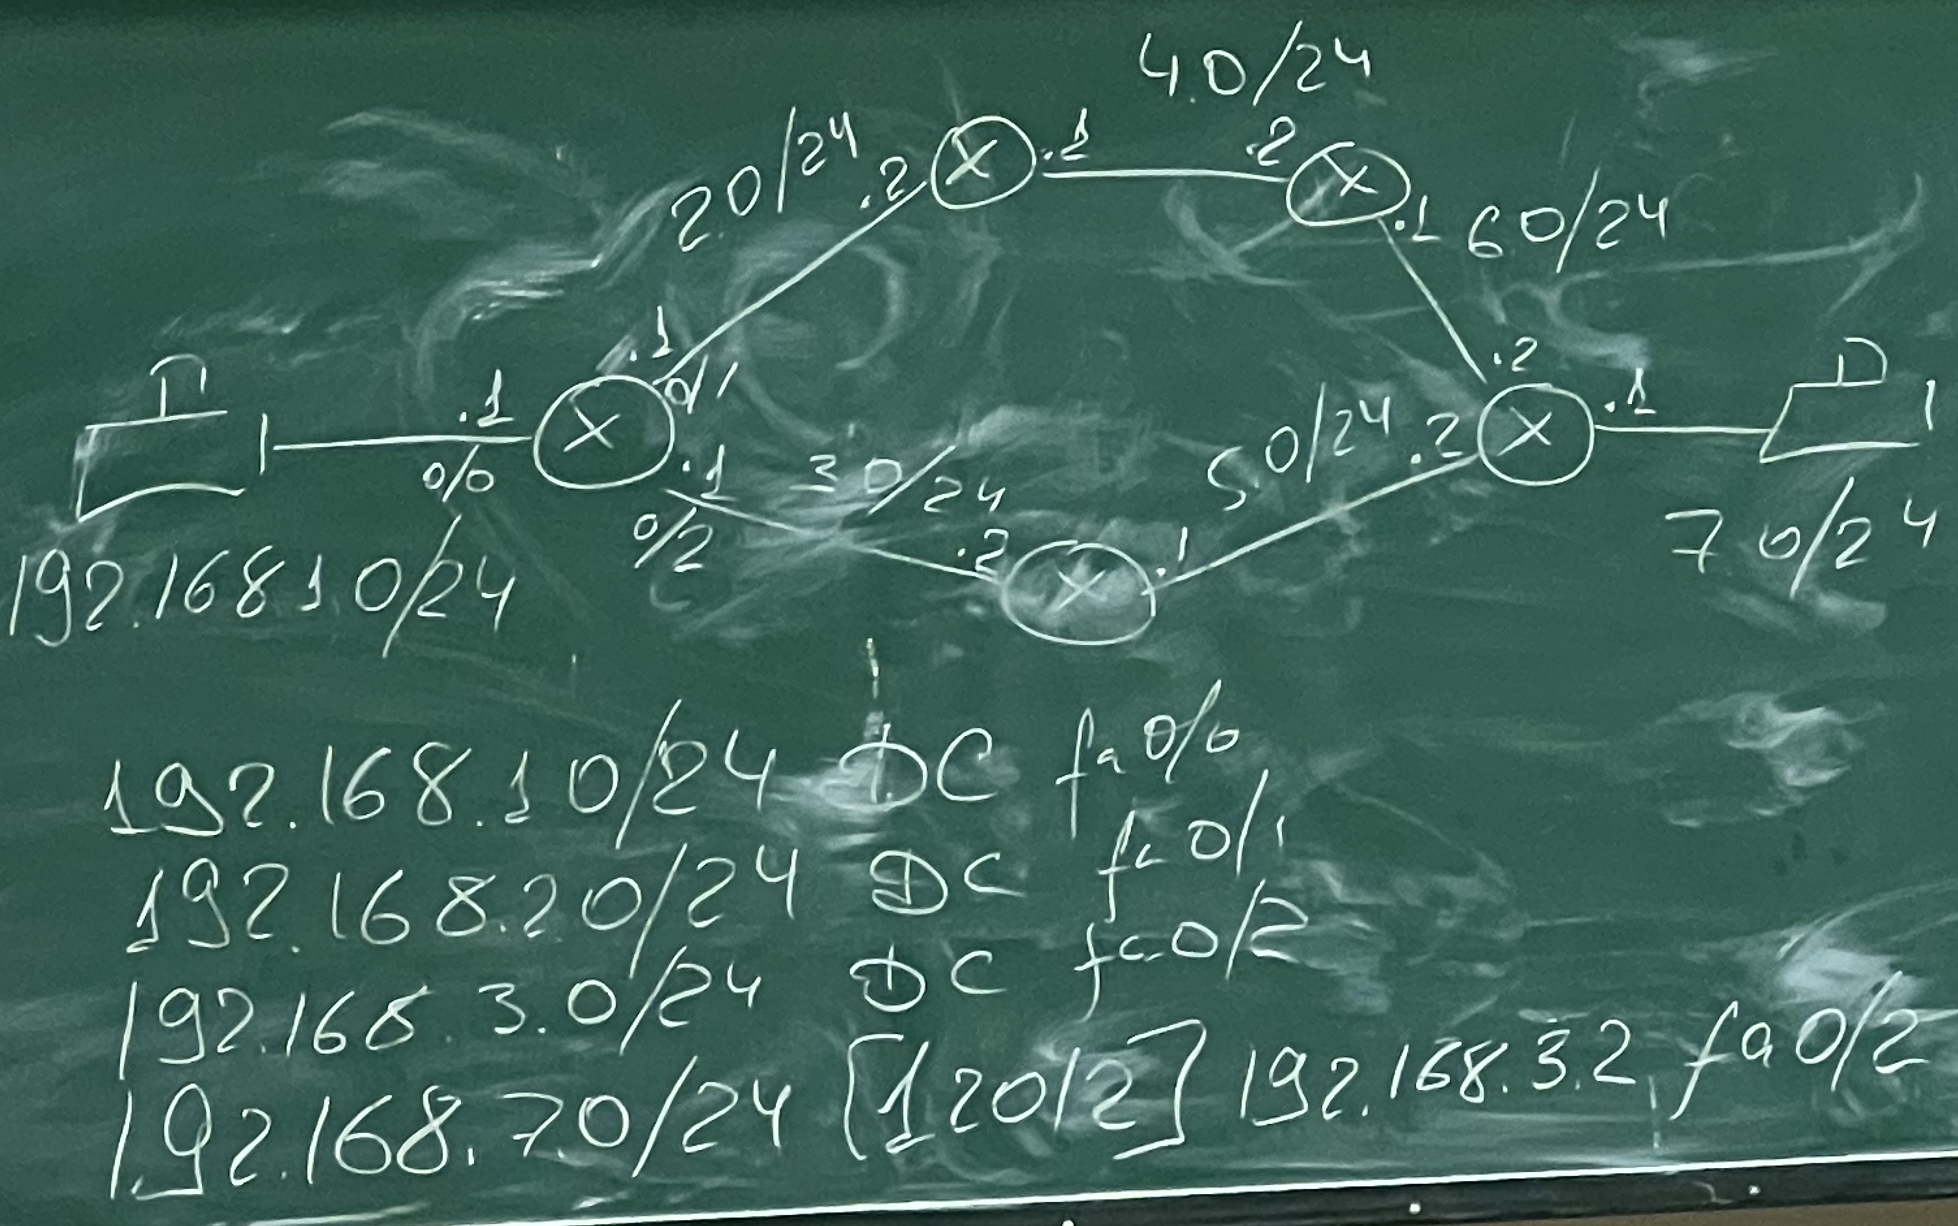 4.0/24
2.0/24
.2
.1
.2
.1
6 0/24
.1
0/1
.2
.1
0/0
.1
3 0/24
5.0/24
.2
.1
0/2
.2
.1
7 0/24
192.168 1 0/24
192.168.1 0/24 DC fa 0/0
192.168.20/24 DC fa 0/1
192.168.3.0/24 DC fa 0/2
192.168.70/24 [120/2] 192.168.3.2 fa 0/2